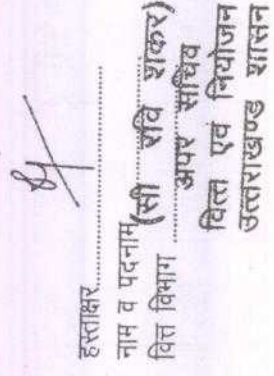 हस्ताक्षर
नाम व पदनाम (सी रवि शंकर)
वित्त विभाग अपर सचिव
वित्त एवं नियोजन
उत्तराखण्ड शासन